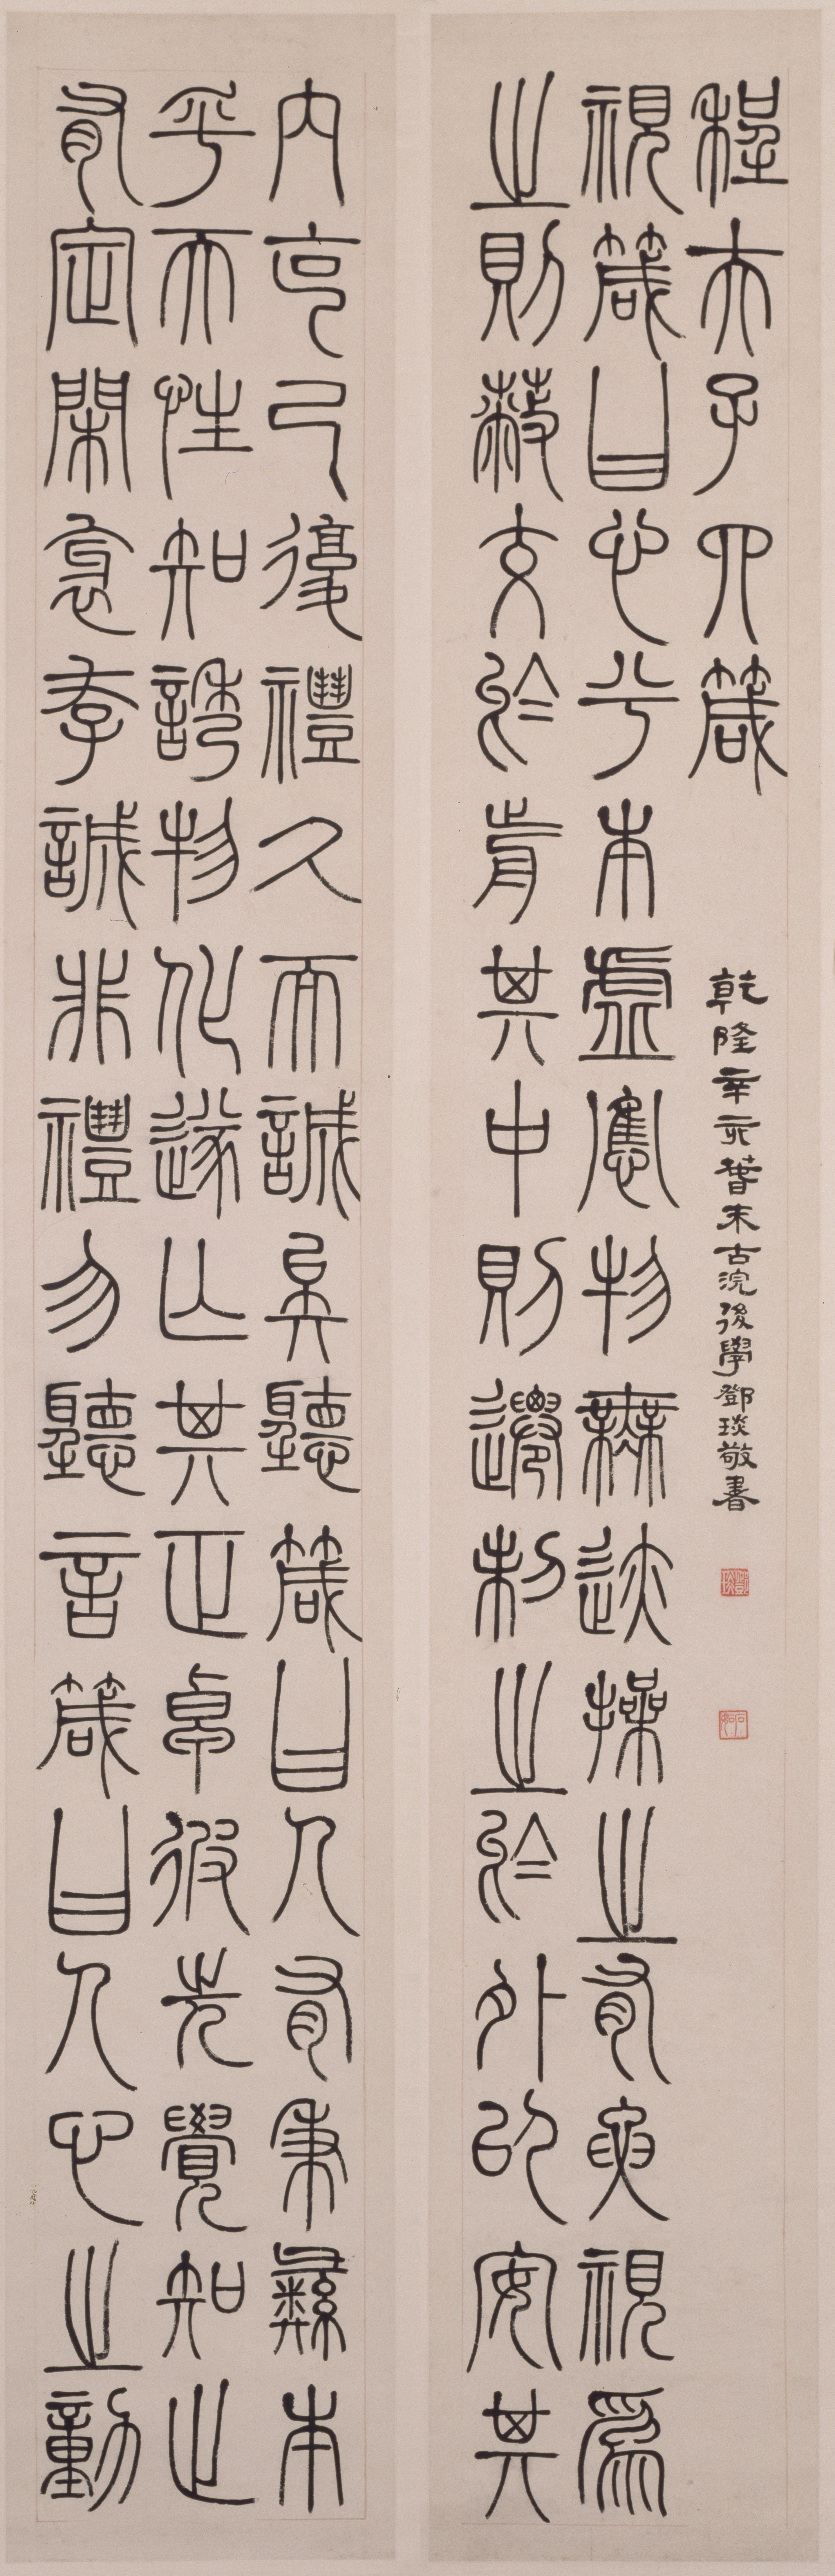 程夫子四箴
乾隆辛亥萅末古浣後學鄧琰敬書
鄧琰
石如
視箴曰心兮本虛應物無迹操之有要視爲
之則蔽交於前其中則遷制之於外以安其
內克己復禮久而誠矣聽箴曰人有秉彝本
乎天性知誘物化遂亡其正卓彼先覺知止
有定閑邪存誠非禮勿聽言箴曰人心之動